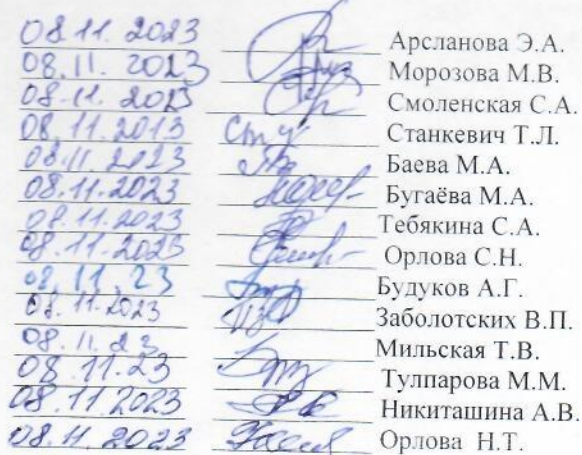 08.11.2023 Арсланова Э.А.
08.11.2023 Морозова М.В.
08.11.2023 Смоленская С.А.
08.11.2013 Станкевич Т.Л.
08.11.2023 Баева М.А.
08.11.2023 Бугаёва М.А.
08.11.2023 Тебякина С.А.
08.11.2023 Орлова С.Н.
08.11.23 Будуков А.Г.
08.11.2023 Заболотских В.П.
08.11.23 Мильская Т.В.
08.11.23 Тулпарова М.М.
08.11.2023 Никиташина А.В.
08.11.2023 Орлова Н.Т.